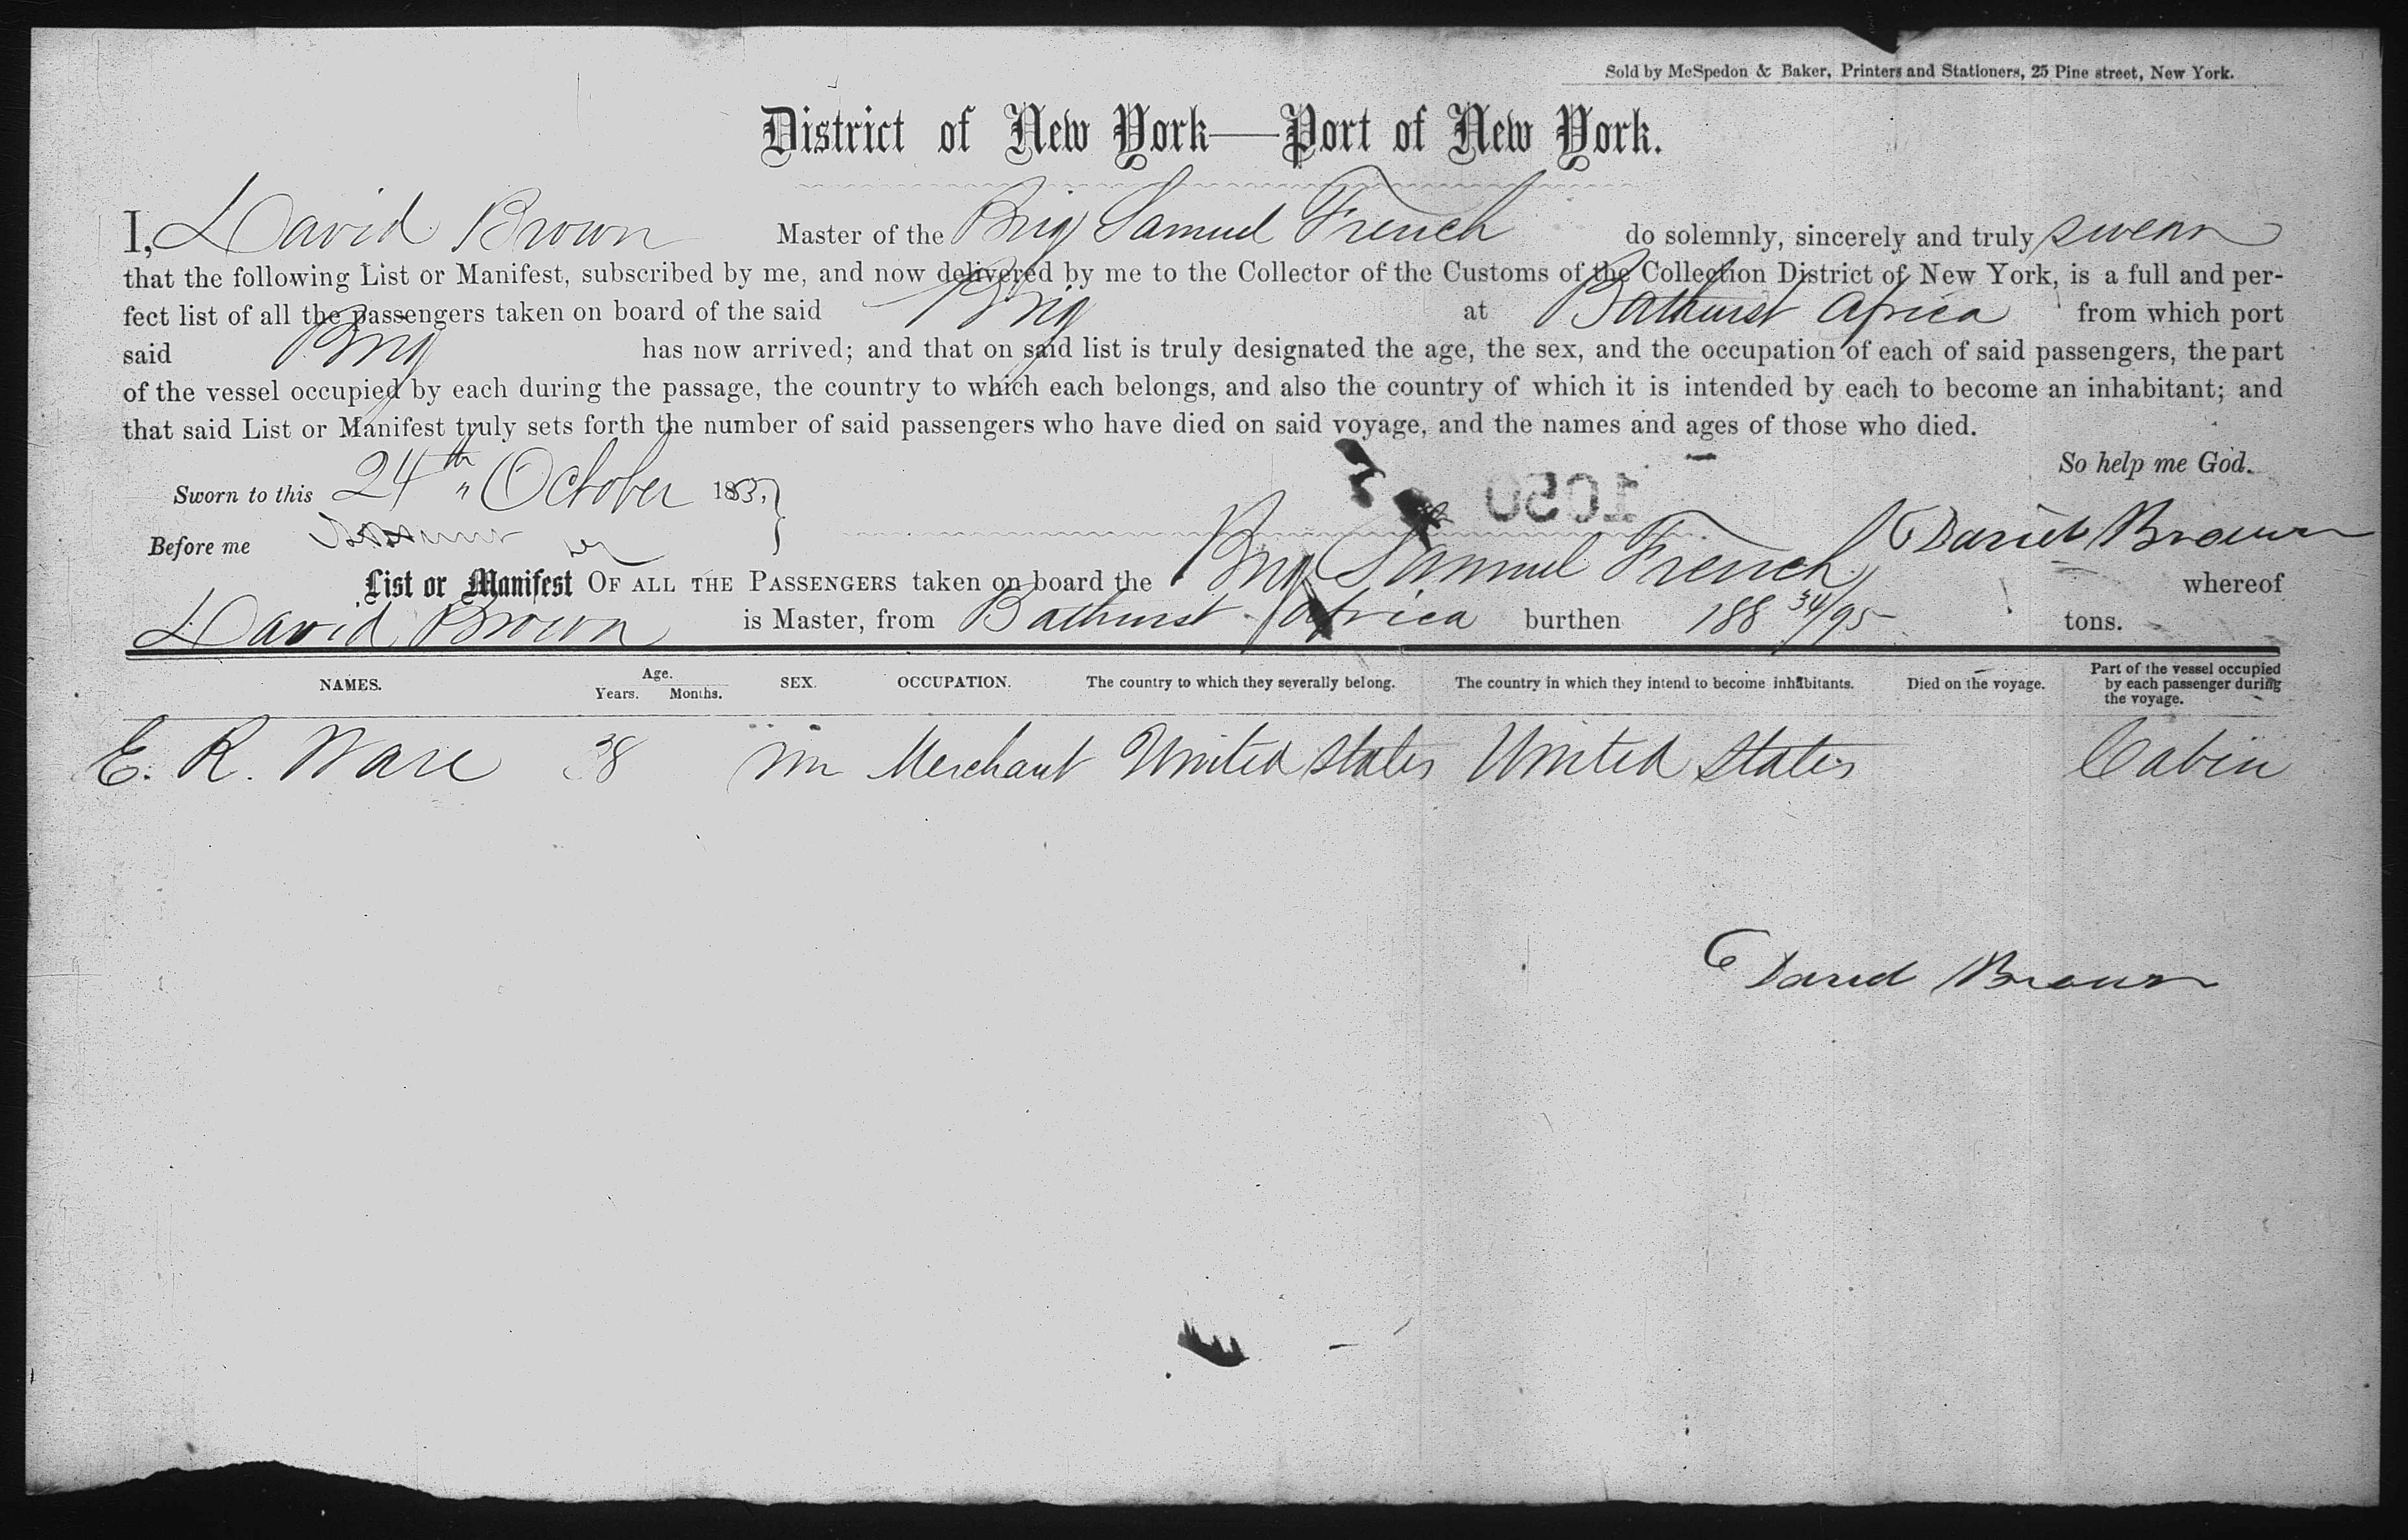 Sold by McSpedon & Baker, Printers and Stationers, 25 Pine street, New York.
District of New York—Port of New York.
I, David Brown Master of the Brig Samuel French do solemnly, sincerely and truly swear
that the following List or Manifest, subscribed by me, and now delivered by me to the Collector of the Customs of the Collection District of New York, is a full and per-
fect list of all the passengers taken on board of the said Brig at Bathurst Africa from which port
said Brig has now arrived; and that on said list is truly designated the age, the sex, and the occupation of each of said passengers, the part
of the vessel occupied by each during the passage, the country to which each belongs, and also the country of which it is intended by each to become an inhabitant; and
that said List or Manifest truly sets forth the number of said passengers who have died on said voyage, and the names and ages of those who died.
So help me God.
Sworn to this 24th " October 1853,
1050
Before me
David Brown
List or Manifest OF ALL THE PASSENGERS taken on board the Brig Samuel French whereof
David Brown is Master, from Bathurst Africa burthen 188 34/95 tons.
NAMES. Age. Years. Months. SEX. OCCUPATION. The country to which they severally belong. The country in which they intend to become inhabitants. Died on the voyage. Part of the vessel occupied by each passenger during the voyage.
E. R. Ware 38 m Merchant United States United States Cabin
David Brown